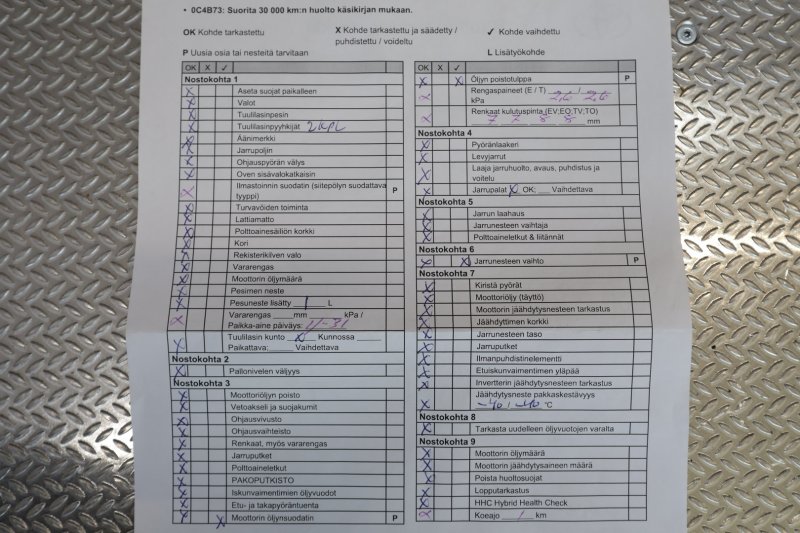 • 0C4B73: Suorita 30 000 km:n huolto käsikirjan mukaan.
OK Kohde tarkastettu
X Kohde tarkastettu ja säädetty / puhdistettu / voideltu
✓ Kohde vaihdettu
P Uusia osia tai nesteitä tarvitaan
L Lisätyökohde
OK X ✓
Nostokohta 1
X Aseta suojat paikalleen
X Valot
X Tuulilasinpesin
X Tuulilasinpyyhkijät 2 KPL
X Äänimerkki
X Jarrupoljin
X Ohjauspyörän välys
X Oven sisävalokatkaisin
X Ilmastoinnin suodatin (siitepölyn suodattava tyyppi) P
X Turvavöiden toiminta
X Lattiamatto
X Polttoainesäiliön korkki
X Kori
X Rekisterikilven valo
X Vararengas
X Moottorin öljymäärä
X Pesimen neste
X Pesuneste lisätty 1 L
X Vararengas ____mm ______ kPa /
Paikka-aine päiväys: 11-31
X Tuulilasin kunto X Kunnossa
Paikattava;_____ Vaihdettava
Nostokohta 2
X Pallonivelen väljyys
Nostokohta 3
X Moottoriöljyn poisto
X Vetoakseli ja suojakumit
X Ohjausvivusto
X Ohjausvaihteisto
X Renkaat, myös vararengas
X Jarruputket
X Polttoaineletkut
X PAKOPUTKISTO
X Iskunvaimentimien öljyvuodot
X Etu- ja takapyöräntuenta
X X Moottorin öljynsuodatin P
OK X ✓
X X Öljyn poistotulppa P
X Rengaspaineet (E / T) 2,6 / 2,6
kPa
X Renkaat kulutuspinta (EV;EO;TV;TO)
7 7 8 8 mm
Nostokohta 4
X Pyöränlaakeri
X Levyjarrut
X Laaja jarruhuolto, avaus, puhdistus ja voitelu
X Jarrupalat X OK; ___ Vaihdettava
Nostokohta 5
X Jarrun laahaus
X Jarrunesteen vaihtaja
X Polttoaineletkut & liitännät
Nostokohta 6
X X Jarrunesteen vaihto P
Nostokohta 7
X Kiristä pyörät
X Moottoriöljy (täyttö)
X Moottorin jäähdytysnesteen tarkastus
X Jäähdyttimen korkki
X Jarrunesteen taso
X Jarruputket
X Ilmanpuhdistinelementti
X Etuiskunvaimentimen yläpää
X Invertterin jäähdytysnesteen tarkastus
X Jäähdytysneste pakkaskestävyys
-40 / -40 °C
Nostokohta 8
X Tarkasta uudelleen öljyvuotojen varalta
Nostokohta 9
X Moottorin öljymäärä
X Moottorin jäähdytysaineen määrä
X Poista huoltosuojat
X Lopputarkastus
X HHC Hybrid Health Check
X Koeajo 1 km